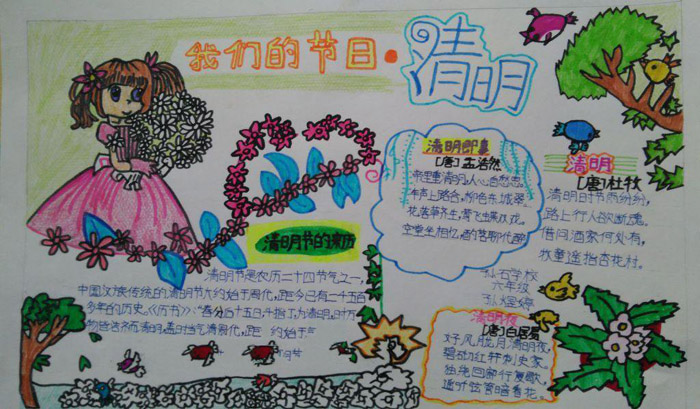 我们的节日·清明
清明节的来历
清明节是农历二十四节气之一,
中国汉族传统的清明节大约始于周代,距今已有二千五百
多年的历史。《历书》:“春分后十五日,斗指丁,为清明,时万
物皆洁齐而清明,盖时当气清
清明即事
[唐]孟浩然
帝里重清明,人心自愁思。
车声上路合,柳色东城翠
花落草齐生,莺飞蝶双戏。
空堂坐相忆,酌茗聊代醉
清明
[唐]杜牧
清明时节雨纷纷,
路上行人欲断魂。
借问酒家何处有,
牧童遥指杏花村。
孙石学校
六年级
清明夜
[唐]白居易
好风胧月清明夜,
碧砌红轩刺史家。
独绕回廊行复歇,
遥听弦管暗看花。